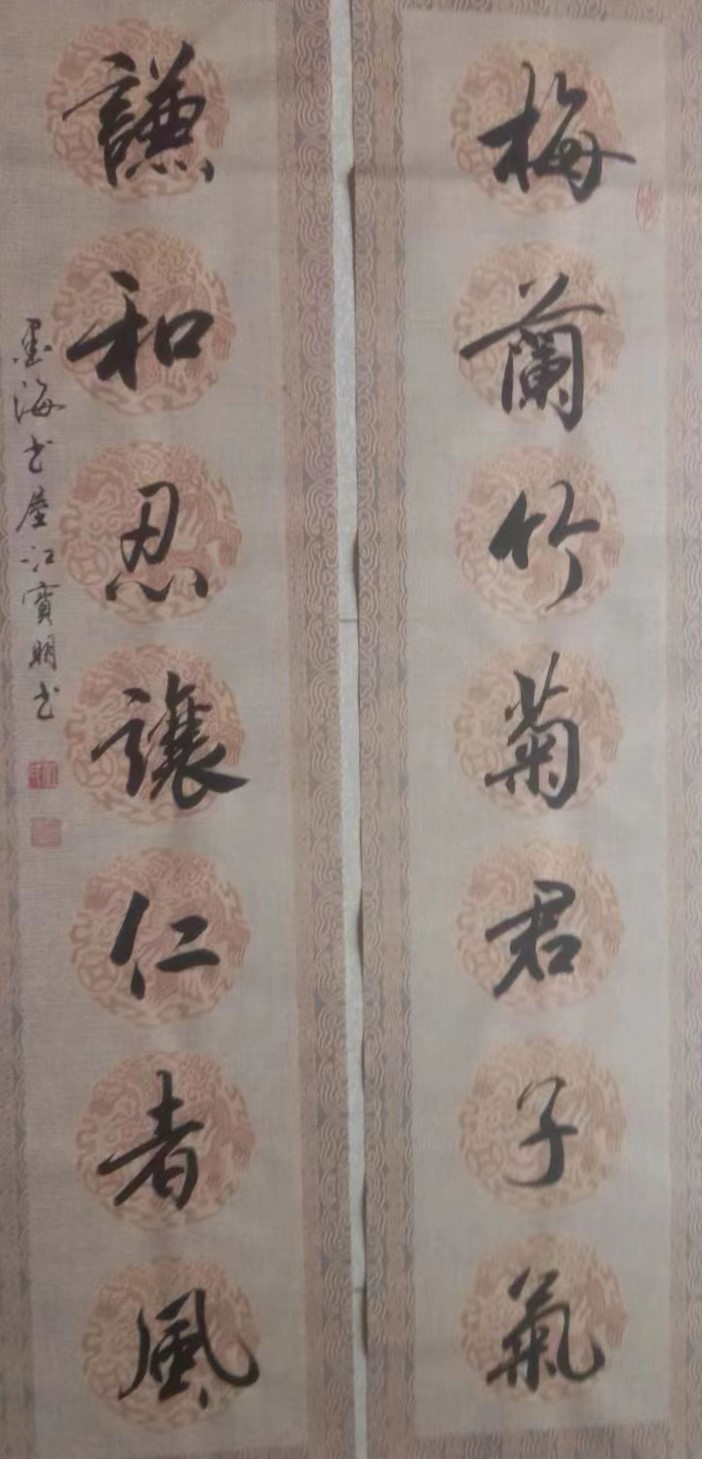 梅蘭竹菊君子氣
謙和忍讓仁者風
墨海书屋江寳明书